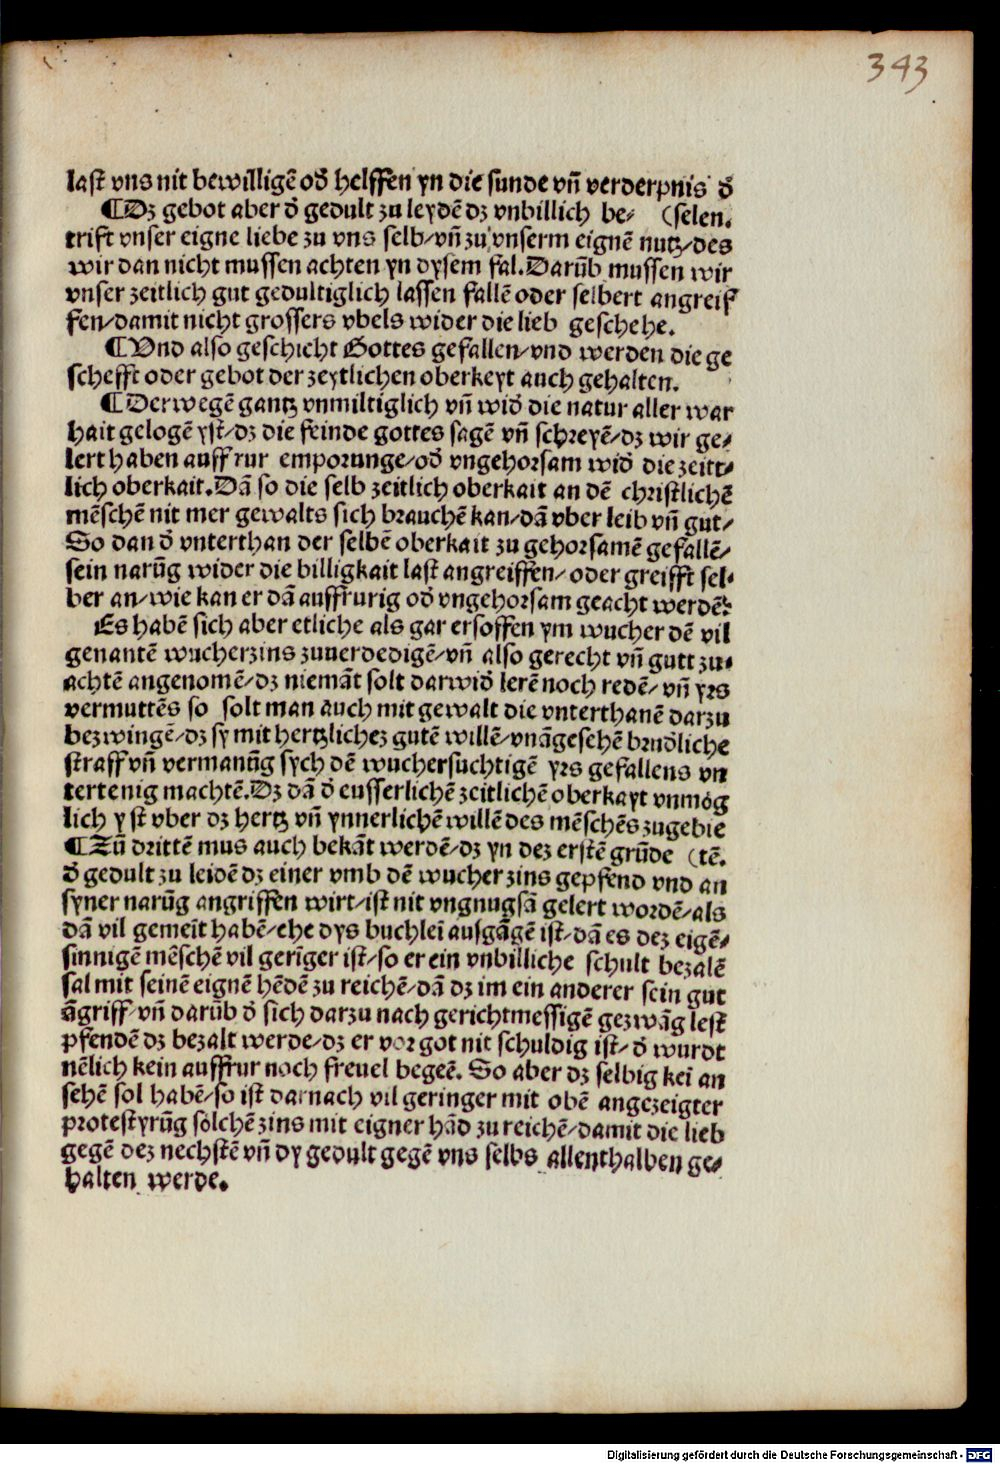 343
last vns nit bewilligē od̄ helffen yn die sunde vn̄ verderpnis d̄
¶Dz gebot aber d̄ gedult zu leydē dz vnbillich be⸗ (selen.
trifft vnser eigne liebe zu vns selb/vn̄ zu vnserm eignē nutz/des
wir dan nicht mussen achten yn dysem fal. Darūb mussen wir
vnser zeitlich gut gedultiglich lassen fallē oder selbert angreif
fen/damit nicht grossers vbels wider die lieb geschehe.
¶Vnd also geschicht Gottes gefallen/vnd werden die ge
schefft oder gebot der zeytlichen oberkeyt auch gehalten.
¶Derwegē gantz vnmiltiglich vn̄ wid̄ die natur aller war
hait gelogē yst/dz die feinde gottes sagē vn̄ schreyē/dz wir ge⸗
lert haben auffrur emporunge/od̄ vngehorsam wid̄ die zeitt⸗
lich oberkait. Dā so die selb zeitlich oberkait an dē christlichē
mēschē nit mer gewalts sich brauchē kan/dā vber leib vn̄ gut/
So dan d̄ vnterthan der selbē oberkait zu gehorsamē gefallē/
sein narūg wider die billigkait last angreiffen/oder greifft sel⸗
ber an/wie kan er dā auffrurig od̄ vngehorsam geacht werdē?
Es habē sich aber etliche als gar ersoffen ym wucher dē vil
genantē wucherzins zuuerdedigē/vn̄ also gerecht vn̄ gutt zu⸗
achtē angenomē/dz niemāt solt darwid̄ lerē noch redē/vn̄ yrs
vermuttēs so solt man auch mit gewalt die vnterthanē darzu
bezwingē/dz sy mit hertzlichez gutē willē/vnāgesehē brud̄liche
straff vn̄ vermanūg sych dē wuchersuchtigē yrs gefallens vn
tertenig machtē. Dz dā d̄ eusserlichē zeitlichē oberkayt vnmög
lich yst vber dz hertz vn̄ ynnerlichē willē des mēschēs zugebie
¶Zū drittē mus auch bekāt werdē/dz yn dez erstē grūde (tē.
d̄ gedult zu leidē dz einer vmb dē wucherzins gepfend vnd an
syner narūg angriffen wirt/ist nit vngnugsā gelert wordē/als
dā vil gemeīt habē/ehe dys buchleī ausgāgē ist/dā es dez eigē⸗
sinnigē mēschē vil gerīger ist/so er ein vnbilliche schult bezalē
sal mit seinē eignē hēdē zu reichē/dā dz im ein anderer sein gut
āgriff/vn̄ darūb d̄ sich darzu nach gerichtmessigē gezwāg lest
pfendē dz bezalt werde/dz er vor got nit schuldig ist/d̄ wurdt
nēlich kein auffrur noch freuel begeē. So aber dz selbig keī an
sehē sol habē/so ist darnach vil geringer mit obē angezeigter
protestyrūg solchē zins mit eigner hād zu reichē/damit die lieb
gegē dez nechstē vn̄ dy gedult gegē vns selbs allenthalben ge⸗
halten werde.
Digitalisierung gefördert durch die Deutsche Forschungsgemeinschaft - DFG